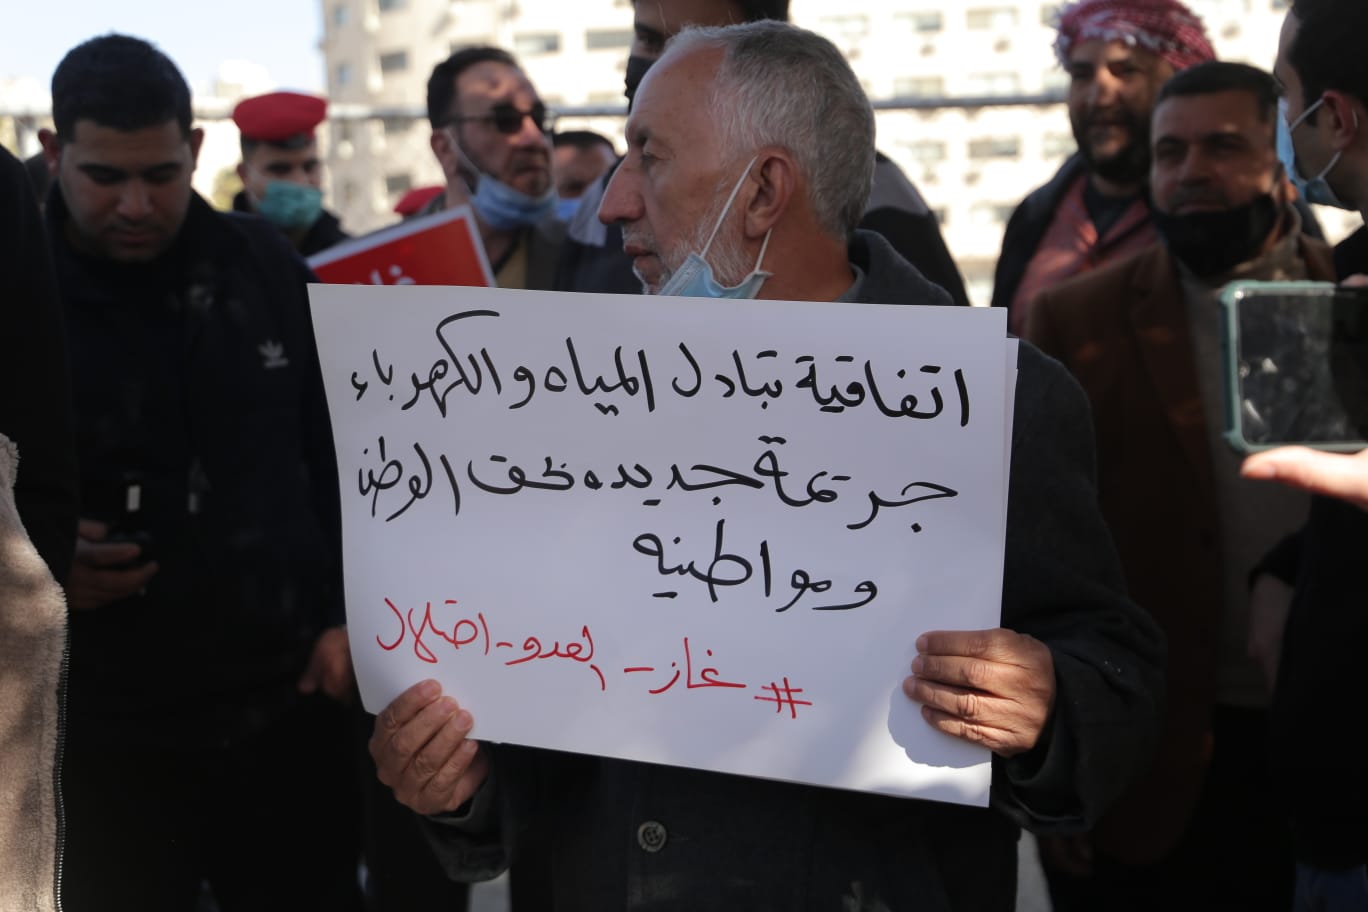 اتفاقية تبادل المياه والكهرباء
جريمة جديده بحق الوطن
ومواطنيه
#غاز-العدو-احتلال